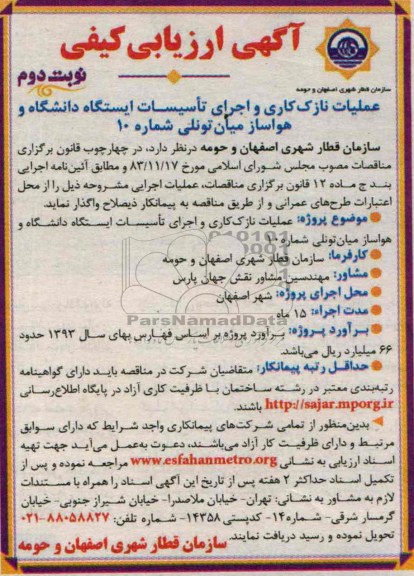 آگهی ارزیابی کیفی
سازمان قطار شهری اصفهان و حومه
نوبت دوم
عملیات نازک‌کاری و اجرای تأسیسات ایستگاه دانشگاه و
هواساز میان‌تونلی شماره ۱۰
سازمان قطار شهری اصفهان و حومه درنظر دارد، در چهارچوب قانون برگزاری
مناقصات مصوب مجلس شورای اسلامی مورخ ۸۳/۱۱/۱۷ و مطابق آئین‌نامه اجرایی
بند ج ماده ۱۲ قانون برگزاری مناقصات، عملیات اجرایی مشروحه ذیل را از محل
اعتبارات طرح‌های عمرانی و از طریق مناقصه به پیمانکار ذیصلاح واگذار نماید.
موضوع پروژه: عملیات نازک‌کاری و اجرای تأسیسات ایستگاه دانشگاه و
هواساز میان‌تونلی شماره ۱۰
کارفرما: سازمان قطار شهری اصفهان و حومه
مشاور: مهندسین مشاور نقش جهان پارس
محل اجرای پروژه: شهر اصفهان
ParsNamadData
مدت اجراء: ۱۵ ماه
برآورد پروژه: برآورد پروژه بر اساس فهارس بهای سال ۱۳۹۳ حدود
۶۶ میلیارد ریال می‌باشد.
حداقل رتبه پیمانکار: متقاضیان شرکت در مناقصه باید دارای گواهینامه
رتبه‌بندی معتبر در رشته ساختمان با ظرفیت کاری آزاد در پایگاه اطلاع‌رسانی
http://sajar.mporg.ir باشند.
بدین‌منظور از تمامی شرکت‌های پیمانکاری واجد شرایط که دارای سوابق
مرتبط و دارای ظرفیت کار آزاد می‌باشند، دعوت به‌عمل می‌آید جهت تهیه
اسناد ارزیابی به نشانی www.esfahanmetro.org مراجعه نموده و پس از
تکمیل اسناد حداکثر ۲ هفته پس از تاریخ این آگهی اسناد را همراه با مستندات
لازم به مشاور به نشانی: تهران- خیابان ملاصدرا- خیابان شیراز جنوبی- خیابان
گرمسار شرقی- شماره۱۴- کدپستی ۱۴۳۵۸- شماره تلفن: ۸۸۰۵۸۸۲۷-۰۲۱
تحویل نموده و رسید دریافت نمایند.
سازمان قطار شهری اصفهان و حومه